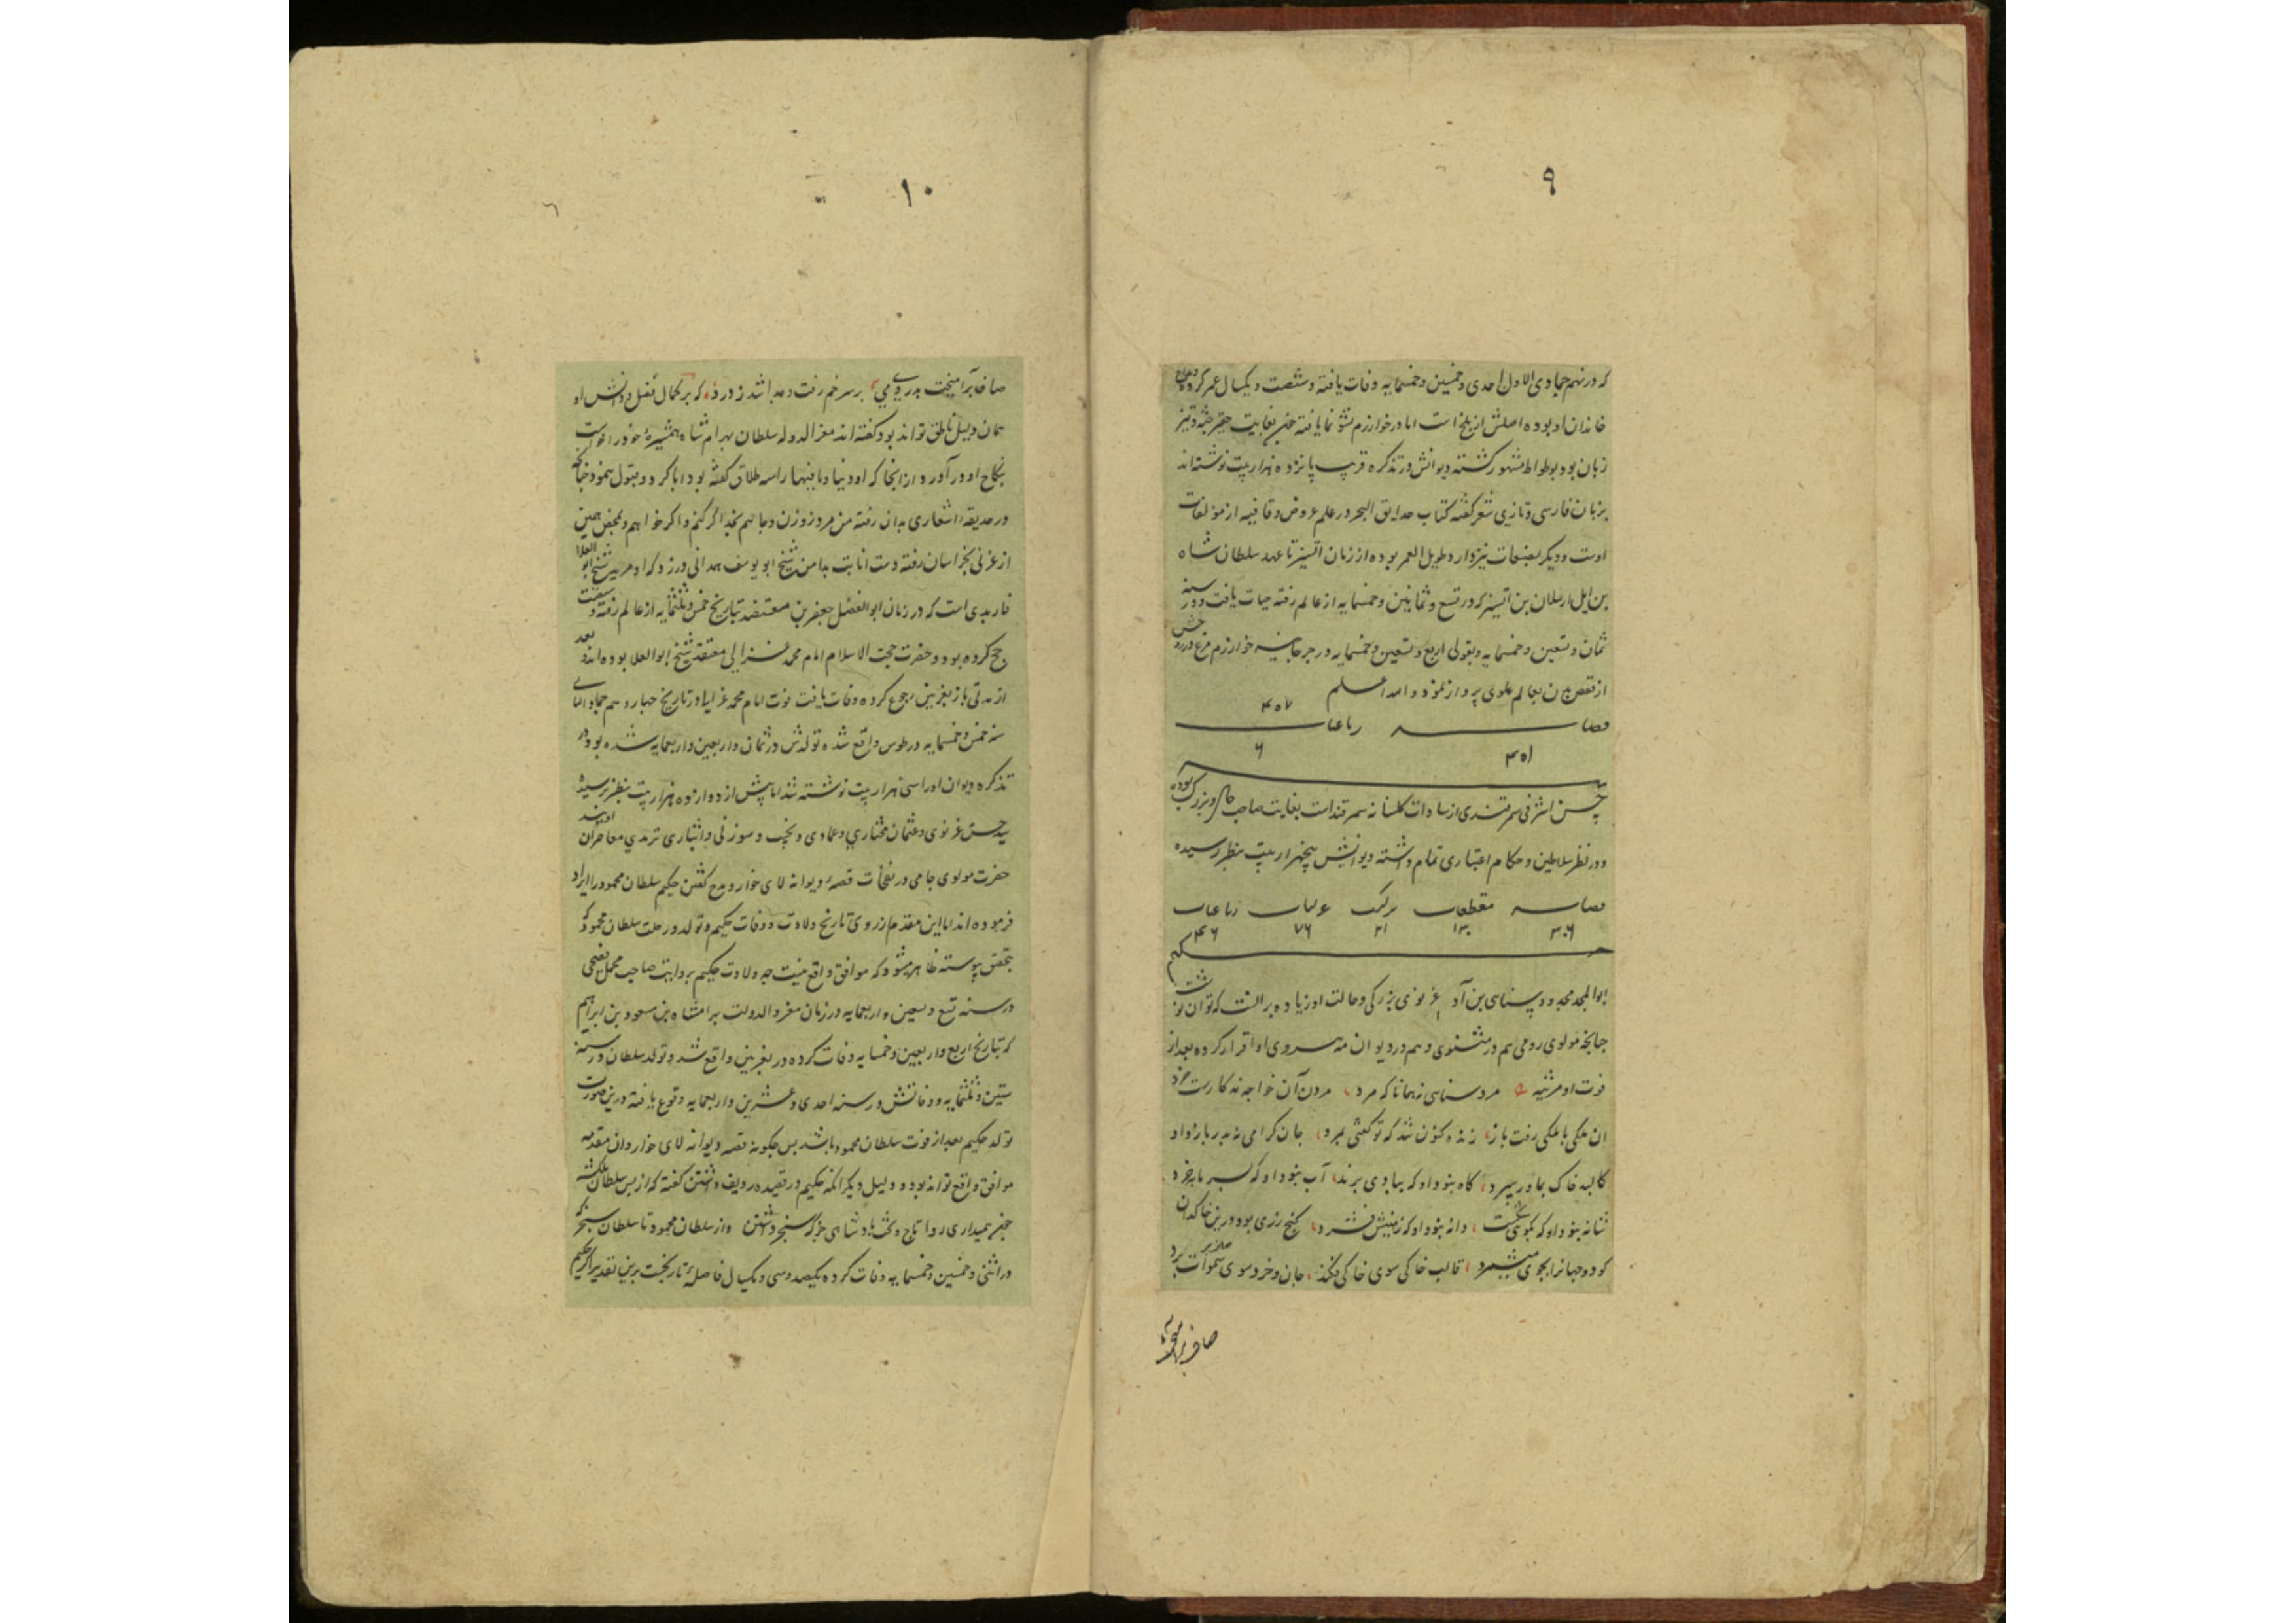 ۹
که در نهم جمادی الاول احدی و خمسین و خمسمایه وفات یافته و شصت و یکسال عمر کرده و مداح
خاندان او بوده اصلش از بلخ است اما در خوارزم نشو نما یافته چون بغایت حقیر جثه و تیز
زبان بود بوطواط مشهور گشته دیوانش در تذکره قریب پانزده هزار بیت نوشته اند
بزبان فارسی و تازی شعر گفته کتاب حدایق السحر در علم عروض و قافیه از مولفات
اوست و دیگر مصنفات نیز دارد طویل العمر بوده از زمان اتسز تا عهد سلطان شاه
بن ایل ارسلان بن اتسز که در تسع و ثمانین و خمسمایه از عالم رفته حیات یافت و در سنه
ثمان و تسعین و خمسمایه و بقولی اربع و تسعین و خمسمایه در جرجانیه خوارزم مرغ روحش
از قفص بدن بعالم علوی پرواز نمود والله اعلم
قصاید رباعیات ۴۵۷
۴۵۱ ۶
سید حسن اشرفی سمرقندی از سادات سمرقند است بغایت صاحب حال و بزرگ بوده
و در نظر سلاطین و حکام اعتباری تمام داشته دیوانش پنجهزار بیت بنظر رسیده
قصاید مقطعات ترکیب غزلیات رباعیات
۳۰۶ ۱۳۰ ۲۱ ۷۶ ۴۶
حکیم
ابوالمجد مجدود سنایی بن آدم غزنوی بزرگی و حالت او زیاده بر آنست که توان نوشت
چنانچه مولوی رومی هم در مثنوی و هم در دیوان سروری او اقرار کرده بعد از
فوت او مرثیه مرد سنایی نهمانا که مرد مردن آن خواجه نه کاریست خرد
ان ملکی با ملکی رفت باز زنده کنون شد که تو گفتی بمرد جان گرامی به پدر باز داد
کالبد خاک بمادر سپرد کاه نبود او که ببادی برند آب نبود او که بسرما فسرد
شانه نبود او که بموئی شکست دانه نبود او که زمینش فشرد گنج زری بود درین خاکدان
کو دو جهانرا بجوی میشمرد قالب خاکی سوی خاکی فکند جان و خرد سوی سموات برد
صاف برآمیخت
۱۰
صاف برآمیخت بدردی می بر سر خم رفت و جدا شد ز درد که بر کمال فضل و دانش او
همان دلیل ناطق تواند بود گفته اند معزالدوله سلطان بهرام شاه همشیره خود را خواست
بنکاح او در آورد از انجا که او دنیا و مافیها را سه طلاق گفته بود ابا کرد و قبول ننمود چنانکه
در حدیقه اشعاری بدان رفته من نه مرد زن و زر و جاهم بخدا گر کنم و اگر خواهم و بمحض همین
از غزنی بخراسان رفته دست انابت بدامن شیخ ابو یوسف همدانی در زد که او مرید شیخ ابو العلا
فارمدی است که در زمان ابوالفضل جعفر بن معتضد بتاریخ خمس و ثلثمایه از عالم رفته و
حج کرده بود و حضرت حجت الاسلام امام محمد غزالی معتقد شیخ ابوالعلا بوده اند و بعد
از مدتی باز بغزنین رجوع کرده وفات یافت فوت امام محمد غزالی در تاریخ چهاردهم جمادی الثانی
سنه خمس و خمسمایه در طوس واقع شده تولدش در ثمان و اربعین و اربعمایه شده بود در
تذکره دیوان او را سی هزار بیت نوشته شد اما پیش از دوازده هزار بیت بنظر نرسیده
سید حسن غزنوی و عثمان مختاری و عمادی و نجیب و سوزنی و انباری ترمدی معاصران اویند
حضرت مولوی جامی در نفحات قصه دیوانه لای خوار و مدح گفتن حکیم سلطان محمود را ایراد
فرموده اند اما این مقدمه از روی تاریخ ولادت و وفات حکیم و تولد و رحلت سلطان محمود که
بتحقیق پیوسته ظاهر میشود که موافق واقع نیست چه ولادت حکیم بروایت صاحب مجمل فصیحی
در سنه تسع و سبعین و اربعمایه در زمان معزالدولت بهرامشاه بن مسعود بن ابراهیم
که بتاریخ اربع و اربعین و خمسمایه وفات کرده در بغزنین واقع شد و تولد سلطان در سنه
ستین و ثلثمایه و وفاتش در سنه احدی و عشرین و اربعمایه وقوع یافته درین صورت
تولد حکیم بعد از فوت سلطان محمود باشد پس چگونه قصه دیوانه لای خوار و ان مقدمه
موافق واقع تواند بود و دلیل دیگر انکه حکیم در قصیده ردیف داشتن گفته که از پس سلطان ملکشه
چون نمیداری روا تاج و تخت پادشاهی جز که سنجر داشتن و از سلطان محمود تا سلطان سنجر که
در اثنی و خمسین و خمسمایه وفات کرده یکصد و سی و یکسال فاصله تاریخست برین تقدیر اگر حکیم